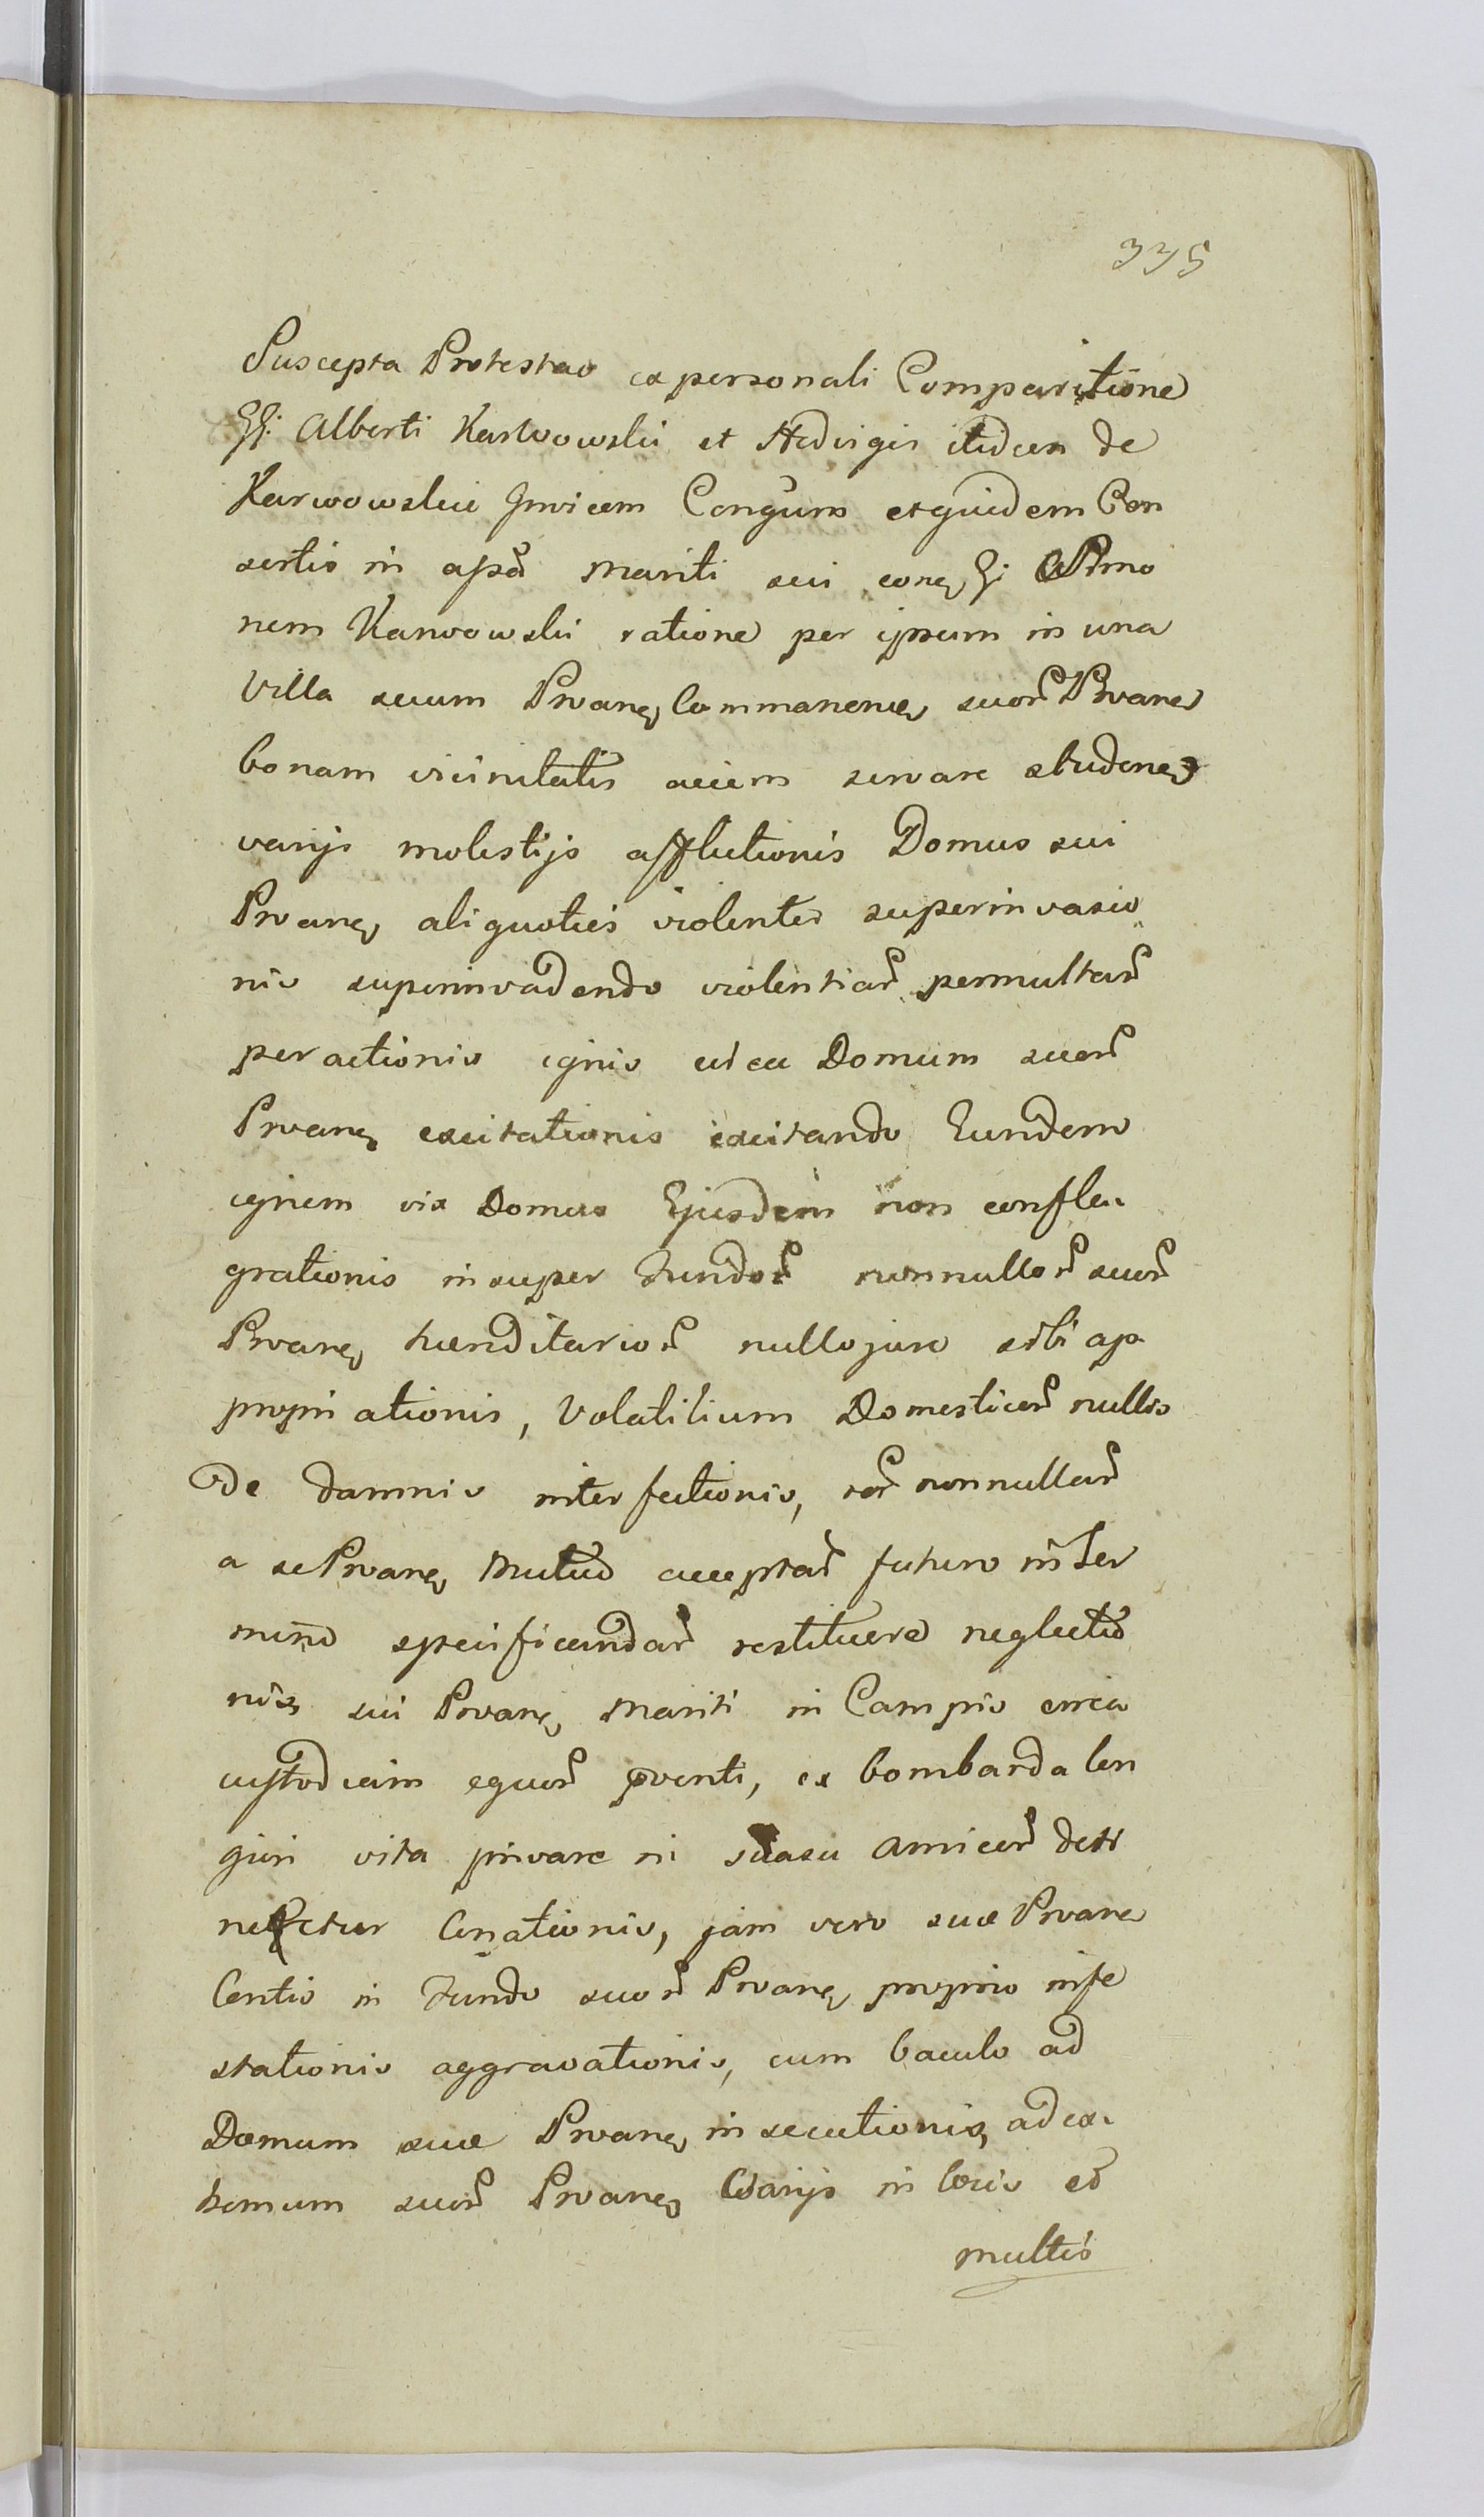 335
Suscepta Protestao ex personali Comparitione
GG: Alberti Karwowski et Hedvigis itidem de
Karwowskie Invicem Conjgum et quidem Con
sortis in assã Mariti sui cone G: Simo
nem Karwowski ratione per ipsum in una
Villa secum Prvane Commanene suor Prvane
bonam vicinitatis aciem servare studene
varijs molestijs afflictionis Domus sui
Prvane aliquoties violenter superinvasio
nis superinvadendo violentiar permultar
peractionis ignis circa Domum suor
Prvane excitationis excitando Eundem
ignem vix Domus Ejusdem non confla-
grationis insuper Fundor nonnullor suor
Prvane hæreditarior nullo jure sibi ap
propriationis, Volatilium Domesticor nullis
de damnis interfectionis, rer nonnullar
a se Prvane Mutuo acceptar futuro in Ter
mino specificandar restituere neglectio
nis sui Prvane Mariti in Campis circa
custodiam equor pventi, ex bombarda lon
giori vita privare ni suasu Amicor deti
neretur Conationis, jam vero suæ Prvane
Centis in Fundo suor Prvane proprio infe
stationis aggravationis, cum baculo ad
Domum suæ Prvane insecutionis, ad ex-
tremum suor Prvane Varijs in locis et
multis